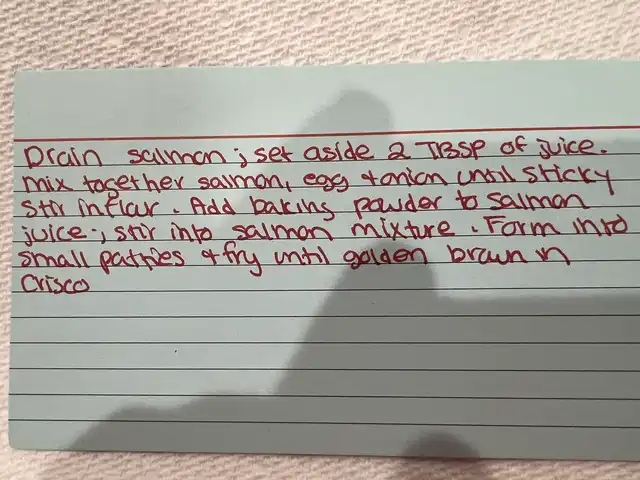 Drain salmon; set aside 2 TBSP of juice.
mix together salmon, egg + onion until sticky
Stir in flour. Add baking powder to salmon
juice; stir into salmon mixture. Form into
small patties + fry until golden brown in
Crisco